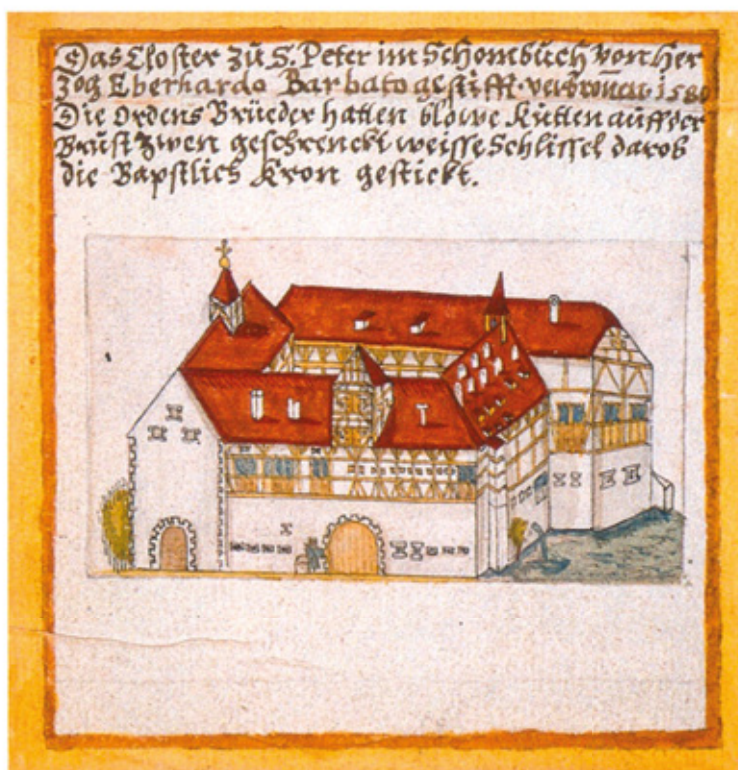 Das Closter zů S. Peter im Schombůch von Her
zog Eberhardo Barbato gestifft. verbronnen. 1580
Die Ordens Brüeder hatten blowe Kutten auff der
Brust zwen geschrenckt weisse Schlissel darob
die Bapstlich Kron gestickt.